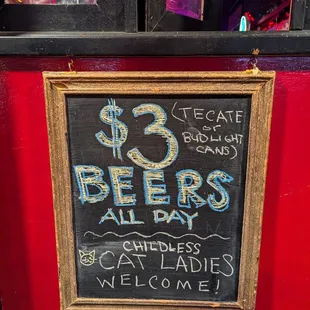 $3 (TECATE
or
BUD LIGHT
CANS)
BEERS
ALL DAY
CHILDLESS
CAT LADIES
WELCOME!